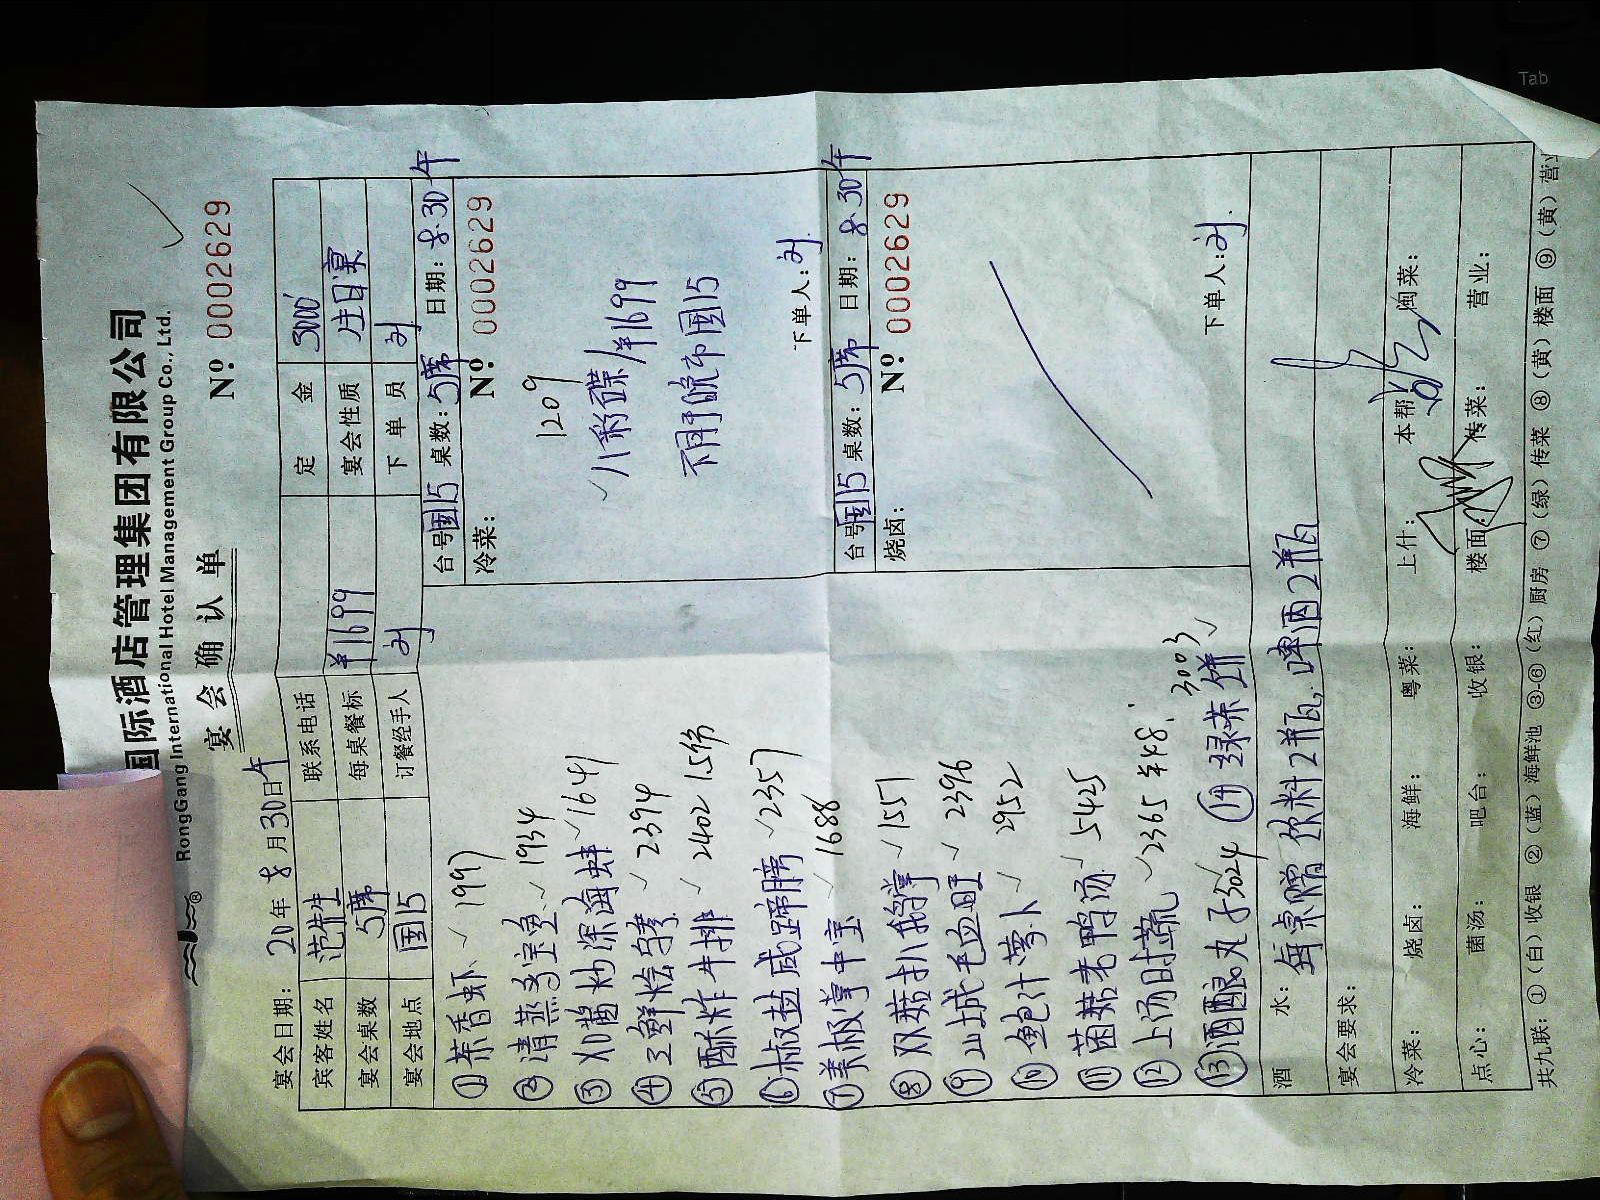 国际酒店管理集团有限公司
RongGang International Hotel Management Group Co., Ltd.
®
宴会确认单
Nº 0002629
宴会日期: 20 年 8 月 30 日 午
宾客姓名 范先生 联系电话 定金 3000
宴会桌数 5席 每桌餐标 ¥1699 宴会性质 生日宴
宴会地点 国15 订餐经手人 刘 下单员 刘
① 茶香虾 ✓ 1997
② 清蒸多宝鱼 ✓ 1934
③ XO酱炒深海蚌 ✓ 1641
④ 三鲜烩 ✓ 2394
⑤ 酥炸牛排 ✓ 2402 15份
⑥ 椒盐咸蹄膀 ✓ 2357
⑦ 美极 中宝 ✓ 1688
⑧ 双菇扒 ✓ 1557
⑨ 山城毛血旺 ✓ 2396
⑩ 鲍汁萝卜 ✓ 2952
⑪ 菌菇老鸭汤 ✓ 5425
⑫ 上汤时蔬 ✓ 2365 半48
⑬ 酒酿丸子 3024 ⑭ 绿茶饼 ✓ 3003
台号 国15 桌数: 5席 日期: 8.30 午
冷菜: Nº 0002629
1209
✓ 八彩碟/¥1699
国15
下单人: 刘
台号 国15 桌数: 5席 日期: 8.30 午
烧卤: Nº 0002629
下单人: 刘.
酒水: 每桌赠饮料2瓶, 啤酒2瓶
宴会要求:
冷菜: 烧卤: 海鲜: 粤菜: 上什: 本帮: 闽菜:
点心: 菌汤: 吧台: 收银: 楼面: 传菜: 营业:
共九联: ①(白)收银 ②(蓝)海鲜池 ③-⑥(红)厨房 ⑦(绿)传菜 ⑧(黄)楼面 ⑨(黄)营业
Tab